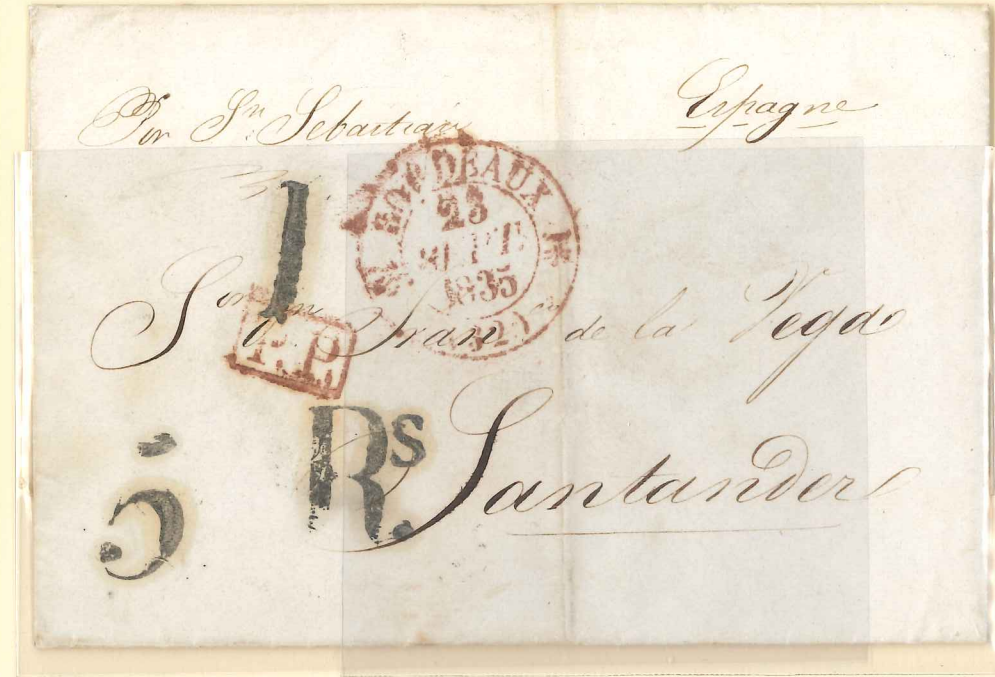 Por Sn. Sebastián
Espagne
BORDEAUX
23
SEPT.
1835
1
Sor Dn Franco de la Vega
P.P.
5 Rs.
Santander